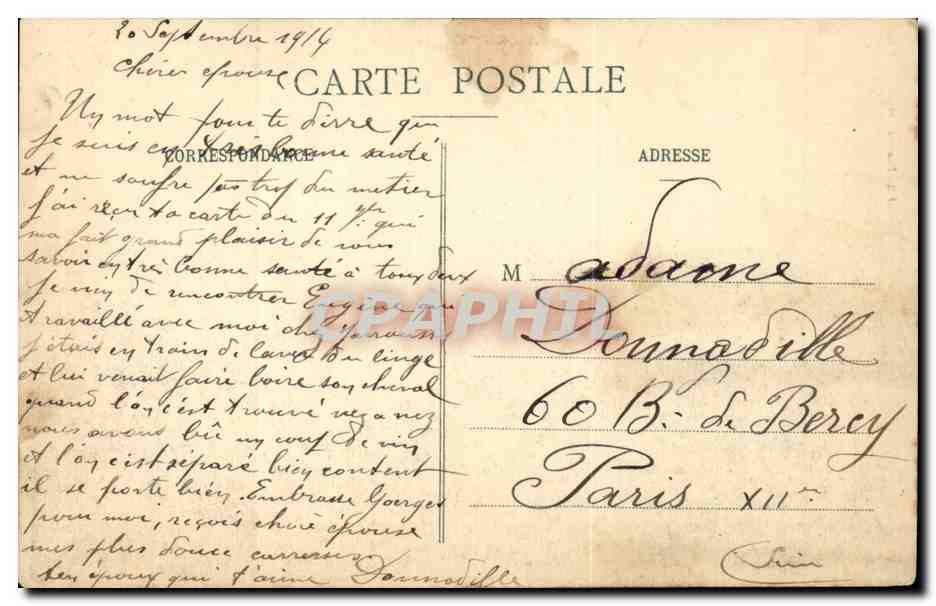 20 Septembre 1914
chère épouse
CARTE POSTALE
CORRESPONDANCE
ADRESSE
Un mot pour te dirre que
je suis en très bonne santé
et ne soufre pas trop du metier
j'ai reçu ta carte du 11 qui
ma fait grand plaisir de vous
savoir en très bonne santé à toux deux
Je vien de rencontrer Eugène qui
travaillé avec moi
j'étais en train de laver du linge
et lui venait faire boire son cheval
quand l'on c'est trouvé nez a nez
nous avons bû un coup de vin
et l'on c'est séparé bien content
il se porte bien. Embrasse Georges
pour moi, reçois chère épouse
mes plus douce carresses
ten époux qui t'aime Donnadille
Madame
Donnadille
60 B. de Bercy
Paris XII
CPAPHIL